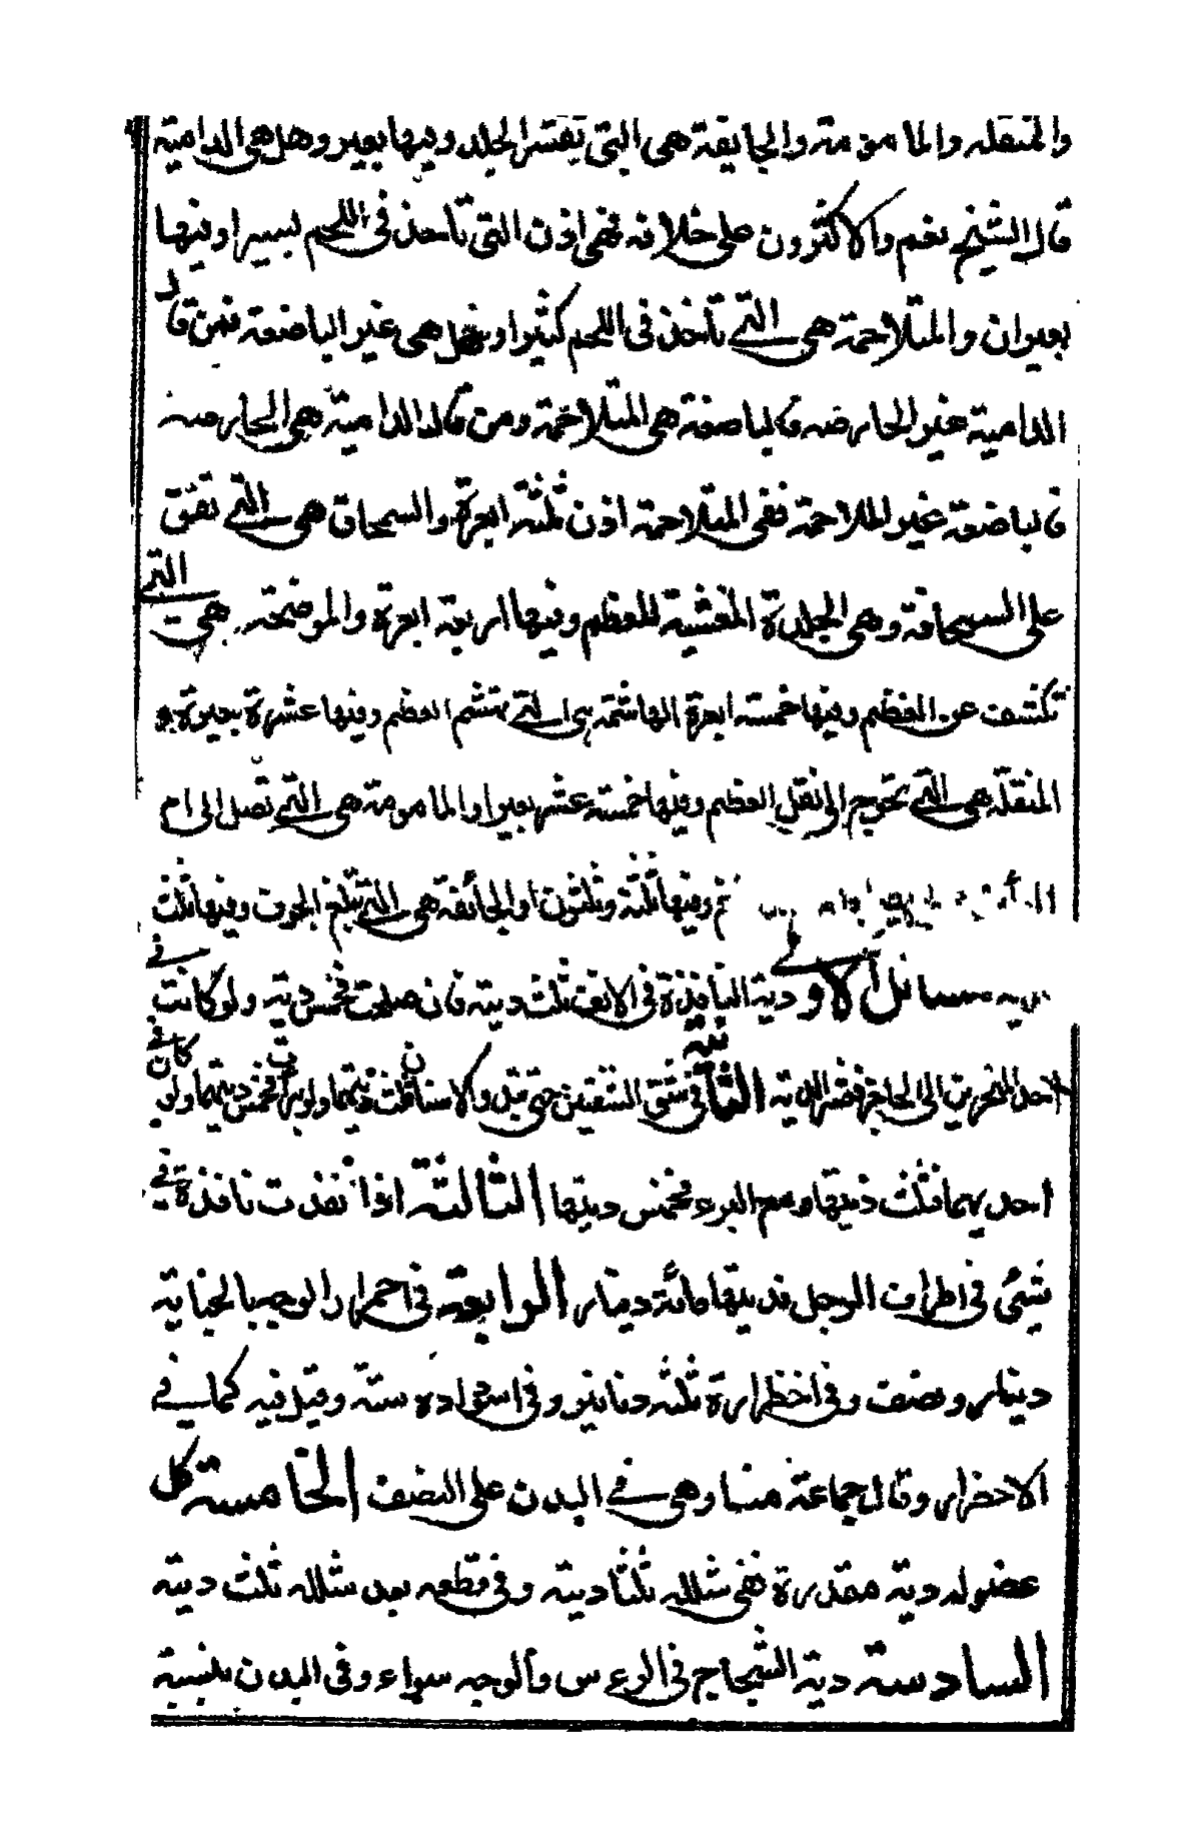 والمنقله والمامومة والجايفة هي التي تقشر الجلد وفيها بعير وهل هي الدامية
قال الشيخ نعم والاكثرون على خلافه فهي اذن التي تاخذ في اللحم يسيرا وفيها
بعيران والمتلاحمة هي التي تاخذ في اللحم كثيرا وهل هي غير الباضعة فمن قال
الدامية غير الحارصه فالباضعة هي المتلاحمة ومن قال الدامية هي الحارصة
فالباضعة غير المتلاحمة ففي المتلاحمة اذن ثلثة ابعرة والسمحاق هي التي تقف
على السمحاقة وهي الجلدة المغشية للعظم وفيها اربعة ابعرة والموضحة هي التي
تكشف عن العظم وفيها خمسة ابعرة الهاشمة هي التي تهشم العظم وفيها عشرة بعيرة
المنقلة هي التي تحوج الى نقل العظم وفيها خمسة عشر بعيرا والمامومة هي التي تصل الى ام
وفيها ثلثة وثلثون او الجائفة هي التي تبلغ الجوف وفيها ثلث
مسائل الاولى دية النافذة في الانف ثلث دية فان صلحت فخمس دية ولو كانت في
احد المنخرين الى الحاجز فعشر الدية الثانية في شق الشفتين حتى تبدو الاسنان ثلث ديتهما ولو برأت فخمس ديتهما ولو كان في
احديهما فثلث ديتها ومع البرء فخمس ديتها الثالثة اذا نفذت نافذة في
شئ في اطراف الرجل فديتها مائة دينار الرابعة في احمرار الوجه بالجناية
دينار ونصف وفي اخضراره ثلثة دنانير وفي اسوداده ستة وقيل فيه كما في
الاخضرار وقال جماعة منا وهي في البدن على النصف الخامسة كل
عضو له دية مقدرة ففي شلله ثلثا دية وفي قطعه بعد شلله ثلث دية
السادسة دية الشجاج في الرءس والوجه سواء وفي البدن بنسبة